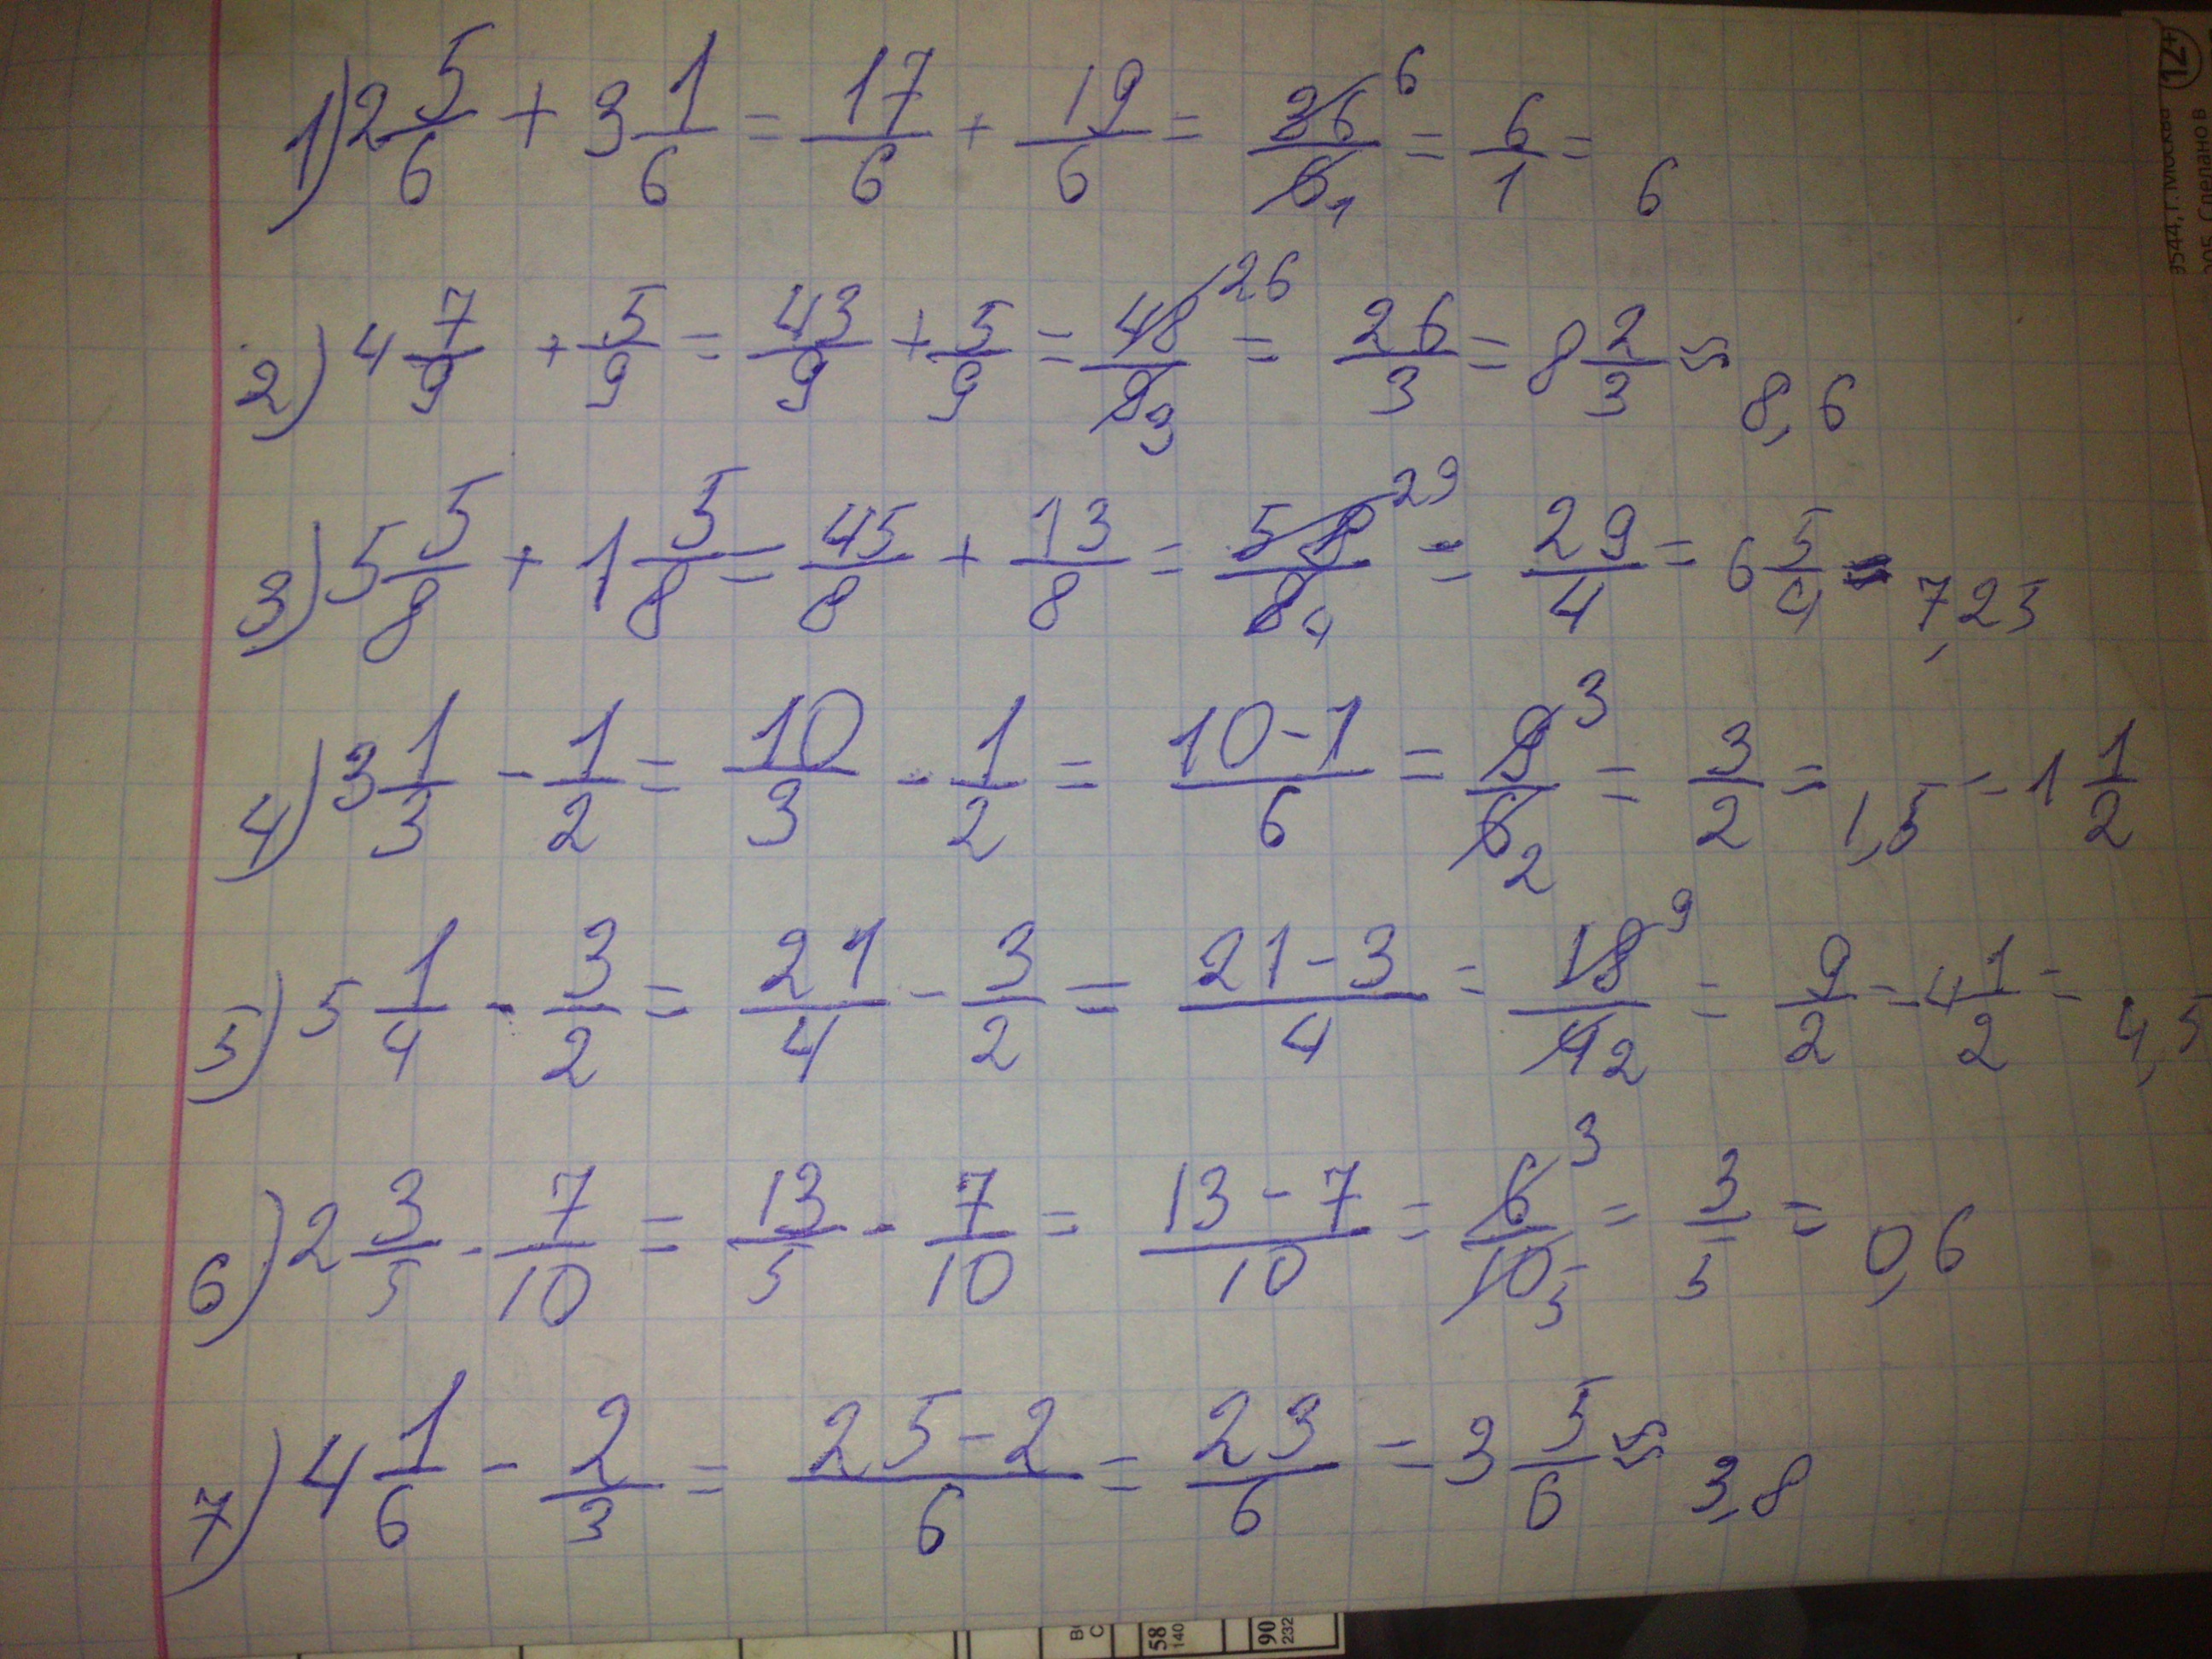 1) 2 5/6 + 3 1/6 = 17/6 + 19/6 = 36/6 6 1 = 6/1 = 6
2) 4 7/9 + 5/9 = 43/9 + 5/9 = 48/9 26 3 = 26/3 = 8 2/3 ≈ 8,6
3) 5 5/8 + 1 5/8 = 45/8 + 13/8 = 58/8 29 4 = 29/4 = 6 5/4 = 7,25
4) 3 1/3 - 1/2 = 10/3 - 1/2 = 10-1/6 = 9/6 3 2 = 3/2 = 1,5 = 1 1/2
5) 5 1/4 - 3/2 = 21/4 - 3/2 = 21-3/4 = 18/4 9 2 = 9/2 = 4 1/2 = 4,5
6) 2 3/5 - 7/10 = 13/5 - 7/10 = 13-7/10 = 6/10 3 5 = 3/5 = 0,6
7) 4 1/6 - 2/3 = 25-2/6 = 23/6 = 3 5/6 ≈ 3,8
12+
58
140
90
232